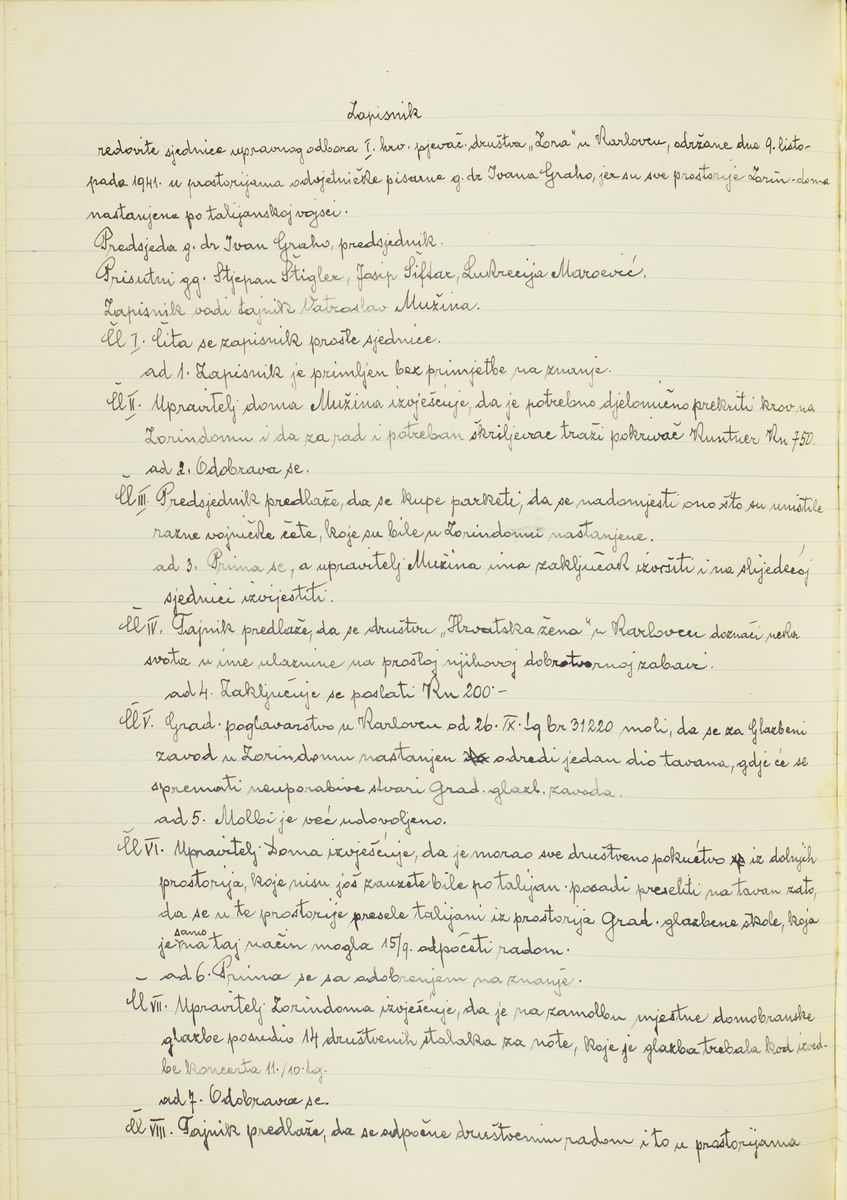 Zapisnik
redovite sjednice upravnog odbora I. hrv. pjevač. društva „Zora" u Karlovcu, održane dne 9. listo-
pada 1941. u prostorijama odvjetničke pisarne g. dr Ivana Graho, jer su sve prostorije Zorin-doma
nastanjene po talijanskoj vojsci.
Predsjeda g. dr Ivan Graho, predsjednik.
Prisutni gg. Stjepan Štigler, Josip Šiftar, Lukrecija Maroević.
Zapisnik vodi tajnik Vatroslav Mužina.
Čl I. Čita se zapisnik prošle sjednice.
ad 1. Zapisnik je primljen bez primjetbe na znanje.
Čl II. Upravitelj doma Mužina izvješćuje, da je potrebno djelomično prekriti krov na
Zorindomu i da za rad i potreban škriljevac traži pokrivač Kuntner Kn 750.
ad 2. Odobrava se.
Čl III. Predsjednik predlaže, da se kupe parketi, da se nadomjesti ono što su uništile
razne vojničke čete, koje su bile u Zorindomu nastanjene.
ad 3. Prima se, a upravitelj Mužina ima zaključak izvršiti i na slijedećoj
sjednici izvijestiti.
Čl IV. Tajnik predlaže, da se društvu „Hrvatska žena" u Karlovcu doznači neka
svota u ime ulaznine na prošloj njihovoj dobrotvornoj zabavi.
ad 4. Zaključuje se poslati Kn 200·–
Čl V. Grad. poglavarstvo u Karlovcu od 26. IX. t.g br 31220 moli, da se za Glazbeni
zavod u Zorindomu nastanjen odredi jedan dio tavana, gdje će se
spremati neuporabive stvari Grad. glazb. zavoda.
ad 5. Molbi je već udovoljeno.
Čl VI. Upravitelj Doma izvješćuje, da je morao sve društveno pokućtvo iz dolnjih
prostorija, koje nisu još zauzete bile po talijan. posadi preseliti na tavan zato,
da se u te prostorije presele talijani iz prostorija Grad. glazbene škole, koja
je samo na taj način mogla 15/9. odpočeti radom.
ad 6. Prima se sa odobrenjem na znanje.
Čl VII. Upravitelj Zorindoma izvješćuje, da je na zamolbu mjestne domobranske
glazbe posudio 14 društvenih stalaka za note, koje je glazba trebala kod izved-
be koncerta 11./10. t.g.
ad 7. Odobrava se.
Čl VIII. Tajnik predlaže, da se odpočne društvenim radom i to u prostorijama